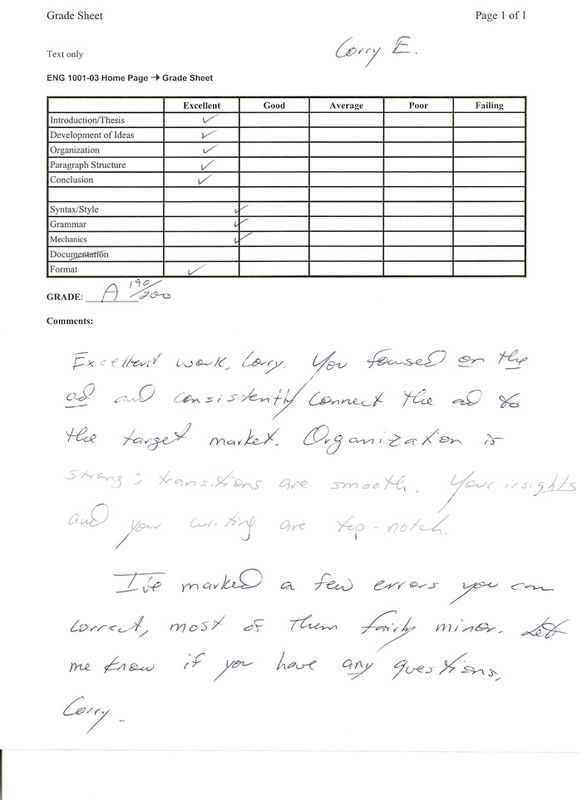 Grade Sheet Page 1 of 1
Text only
Corry E.
ENG 1001-03 Home Page → Grade Sheet
Excellent Good Average Poor Failing
Introduction/Thesis ✓
Development of Ideas ✓
Organization ✓
Paragraph Structure ✓
Conclusion ✓
Syntax/Style ✓
Grammar ✓
Mechanics ✓
Documentation
Format ✓
GRADE: A 190/200
Comments:
Excellent work, Corry. You focused on the
ad and consistently connect the ad to
the target market. Organization is
strong; transitions are smooth. Your insights
and your writing are top-notch.
I've marked a few errors you can
correct, most of them fairly minor. Let
me know if you have any questions,
Corry.